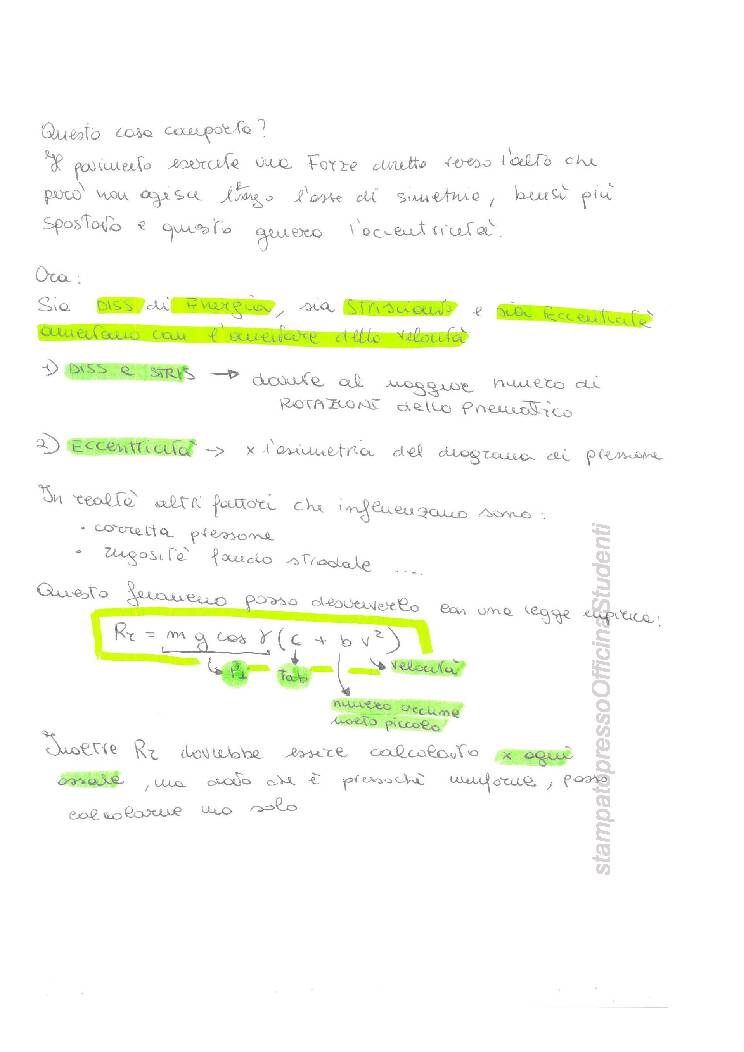 Questo cosa comporta?
Il pavimento esercita una Forza diretta verso l'alto che
però non agisce lungo l'asse di simetria, bensì più
spostato e questo genera l'eccentricità.
Ora:
Sia DISS di Energia, sia STRISCIAM e sia Eccentricità
aumentano con l'aumentare della velocità
1) DISS e STRIS → dovute al maggior numero di
ROTAZIONI dello Pnematico
2) Eccentricità → x l'asimetria del diagrama di pressione
In realtà altri fattori che influenzano sono:
• corretta pressione
• rugosità fondo stradale ....
Questo fenomeno posso descriverlo con una legge empirica:
Rr = m g cos γ (c + b v²)
P⊥ Tab velocità
numero
molto piccolo
Inoltre Rr dovrebbe essere calcolato x ogni
assale, ma dato che è pressochè uniforme, posso
calcolarne uno solo
stampatopressoOfficinaStudenti